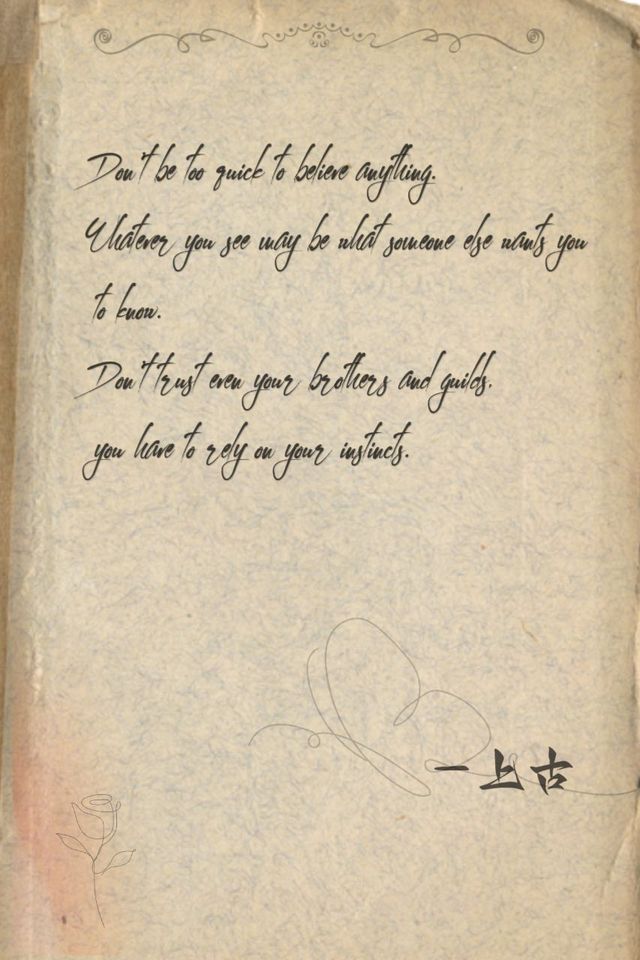 Don't be too quick to believe anything.
Whatever you see may be what someone else wants you
to know.
Don't trust even your brothers and guilds.
you have to rely on your instincts.
一上古